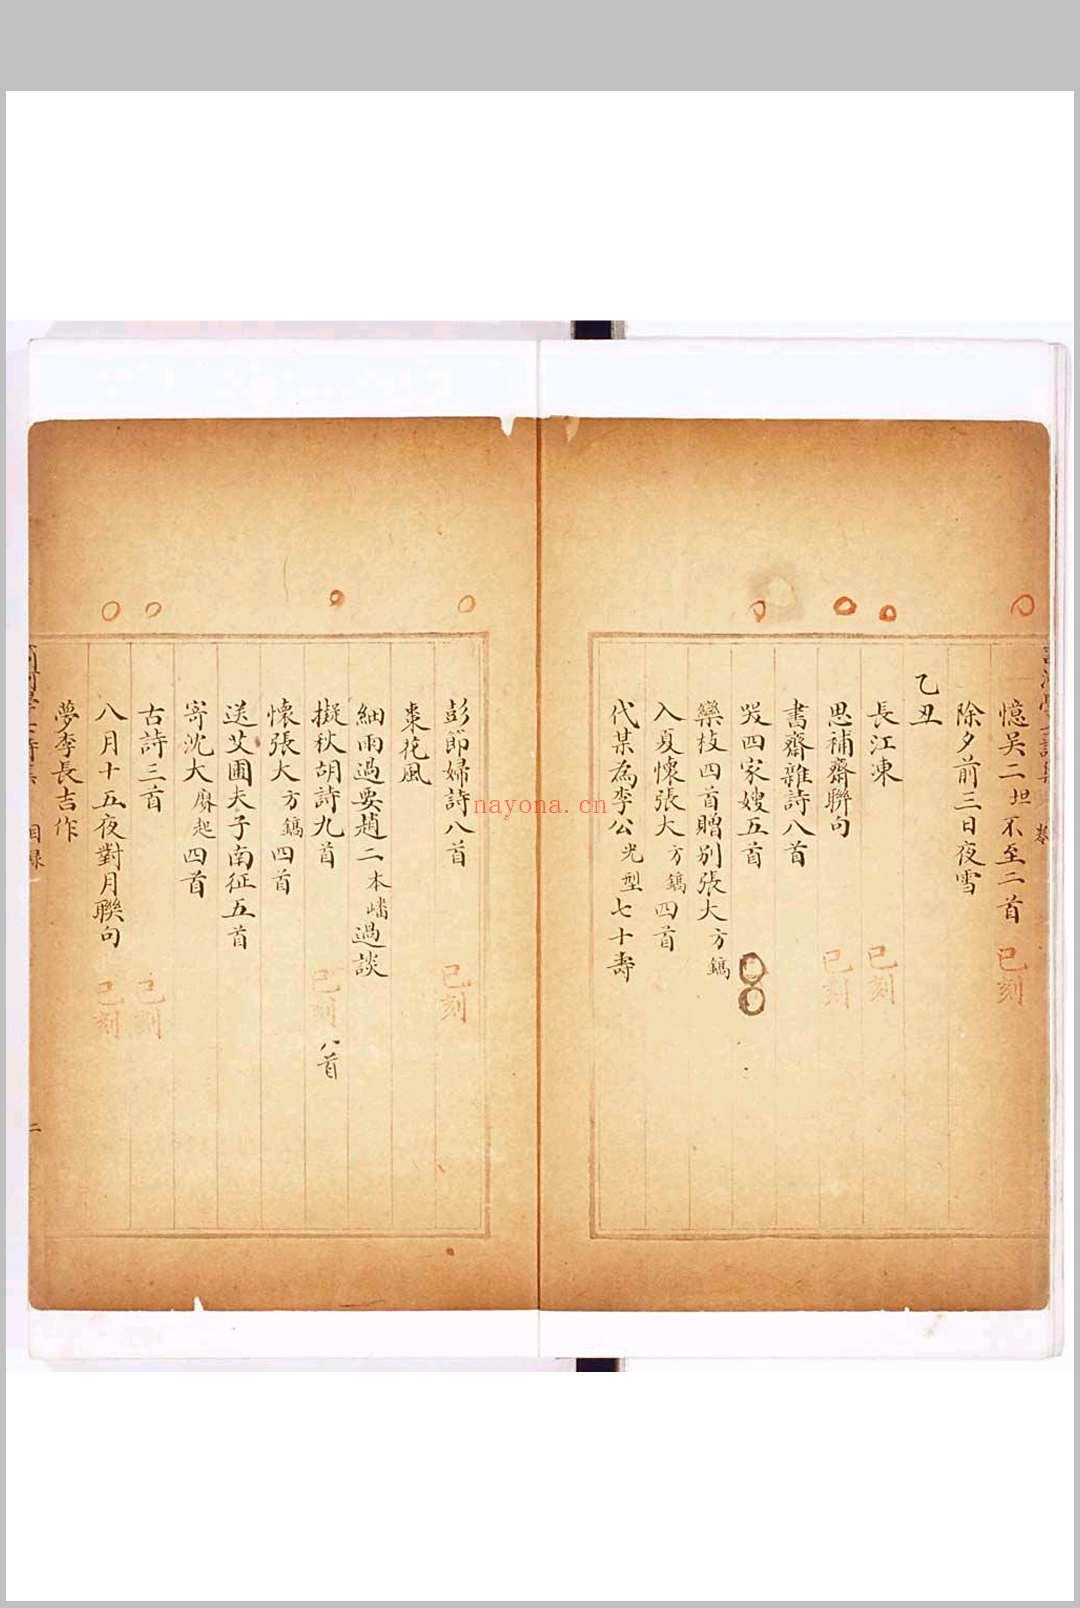 憶吴二坦不至二首 已刻
除夕前三日夜雪
乙丑
長江凍 已刻
思補齋聯句 已刻
書齋雜詩八首
哭四家嫂五首
欒枝四首贈别張大方鎬
入夏懷張大方鎬四首
代某為李公光型七十壽
彭節婦詩八首 已刻
棗花風
細雨過要趙二本嶓過談
擬秋胡詩九首 已刻 八首
懷張大方鎬四首
送艾圃夫子南征五首
寄沈大廕起四首
古詩三首 已刻
八月十五夜對月聯句 已刻
夢李長吉作
目録
二
nayona.cn